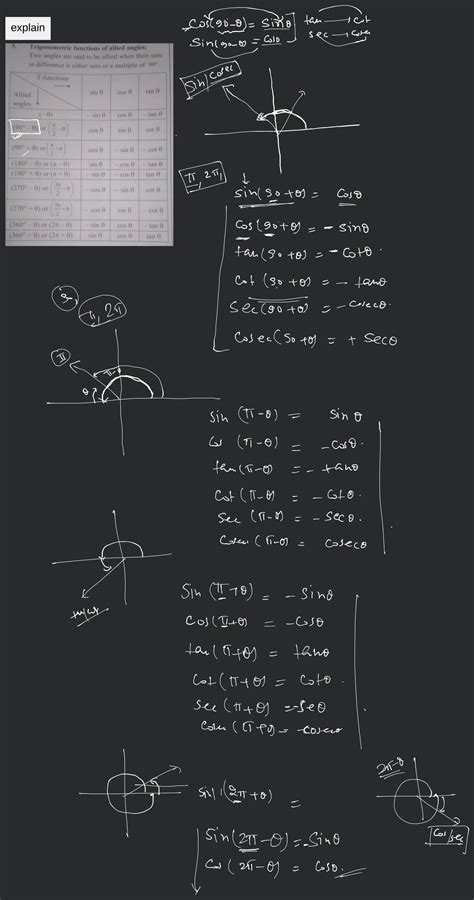 explain
Cos(90-θ) = Sinθ
Sin(90-θ) = Cosθ
tan → Cot
sec → Cosec
Trigonometric functions of allied angles:
Two angles are said to be allied when their sum
or difference is either zero or a multiple of 90°.
T functions
Allied angles
sin θ cos θ tan θ
(-θ) - sin θ cos θ - tan θ
(90° - θ) or (π/2 - θ) cos θ sin θ cot θ
(90° + θ) or (π/2 + θ) cos θ - sin θ - cot θ
(180° - θ) or (π - θ) sin θ - cos θ - tan θ
(180° + θ) or (π + θ) - sin θ - cos θ tan θ
(270° - θ) or (3π/2 - θ) - cos θ - sin θ cot θ
(270° + θ) or (3π/2 + θ) - cos θ sin θ - cot θ
(360° - θ) or (2π - θ) - sin θ cos θ - tan θ
(360° + θ) or (2π + θ) sin θ cos θ tan θ
Sin/Cosec
π, 2π,
sin(90+θ) = Cosθ
Cos(90+θ) = - sinθ
tan(90+θ) = - Cotθ.
Cot (90+θ) = - tanθ
Sec(90+θ) = - Cosecθ.
Cosec(90+θ) = + Secθ
90,
π, 2π
π
π-θ
θ
sin (π-θ) = Sinθ
Cos (π-θ) = -Cosθ.
tan(π-θ) = - tanθ
Cot (π-θ) = - Cotθ.
Sec (π-θ) = - Secθ.
Cosec (π-θ) = Cosecθ
tan/cot
Sin (π+θ) = - Sinθ
Cos(π+θ) = -Cosθ
tan(π+θ) = tanθ
Cot(π+θ) = Cotθ.
sec(π+θ) = -Secθ
Cosec (π+θ) = - Cosecθ
Sin(2π+θ) =
2π-θ
Cos/sec
Sin(2π-θ) = - Sinθ
Cos(2π-θ) = Cosθ.